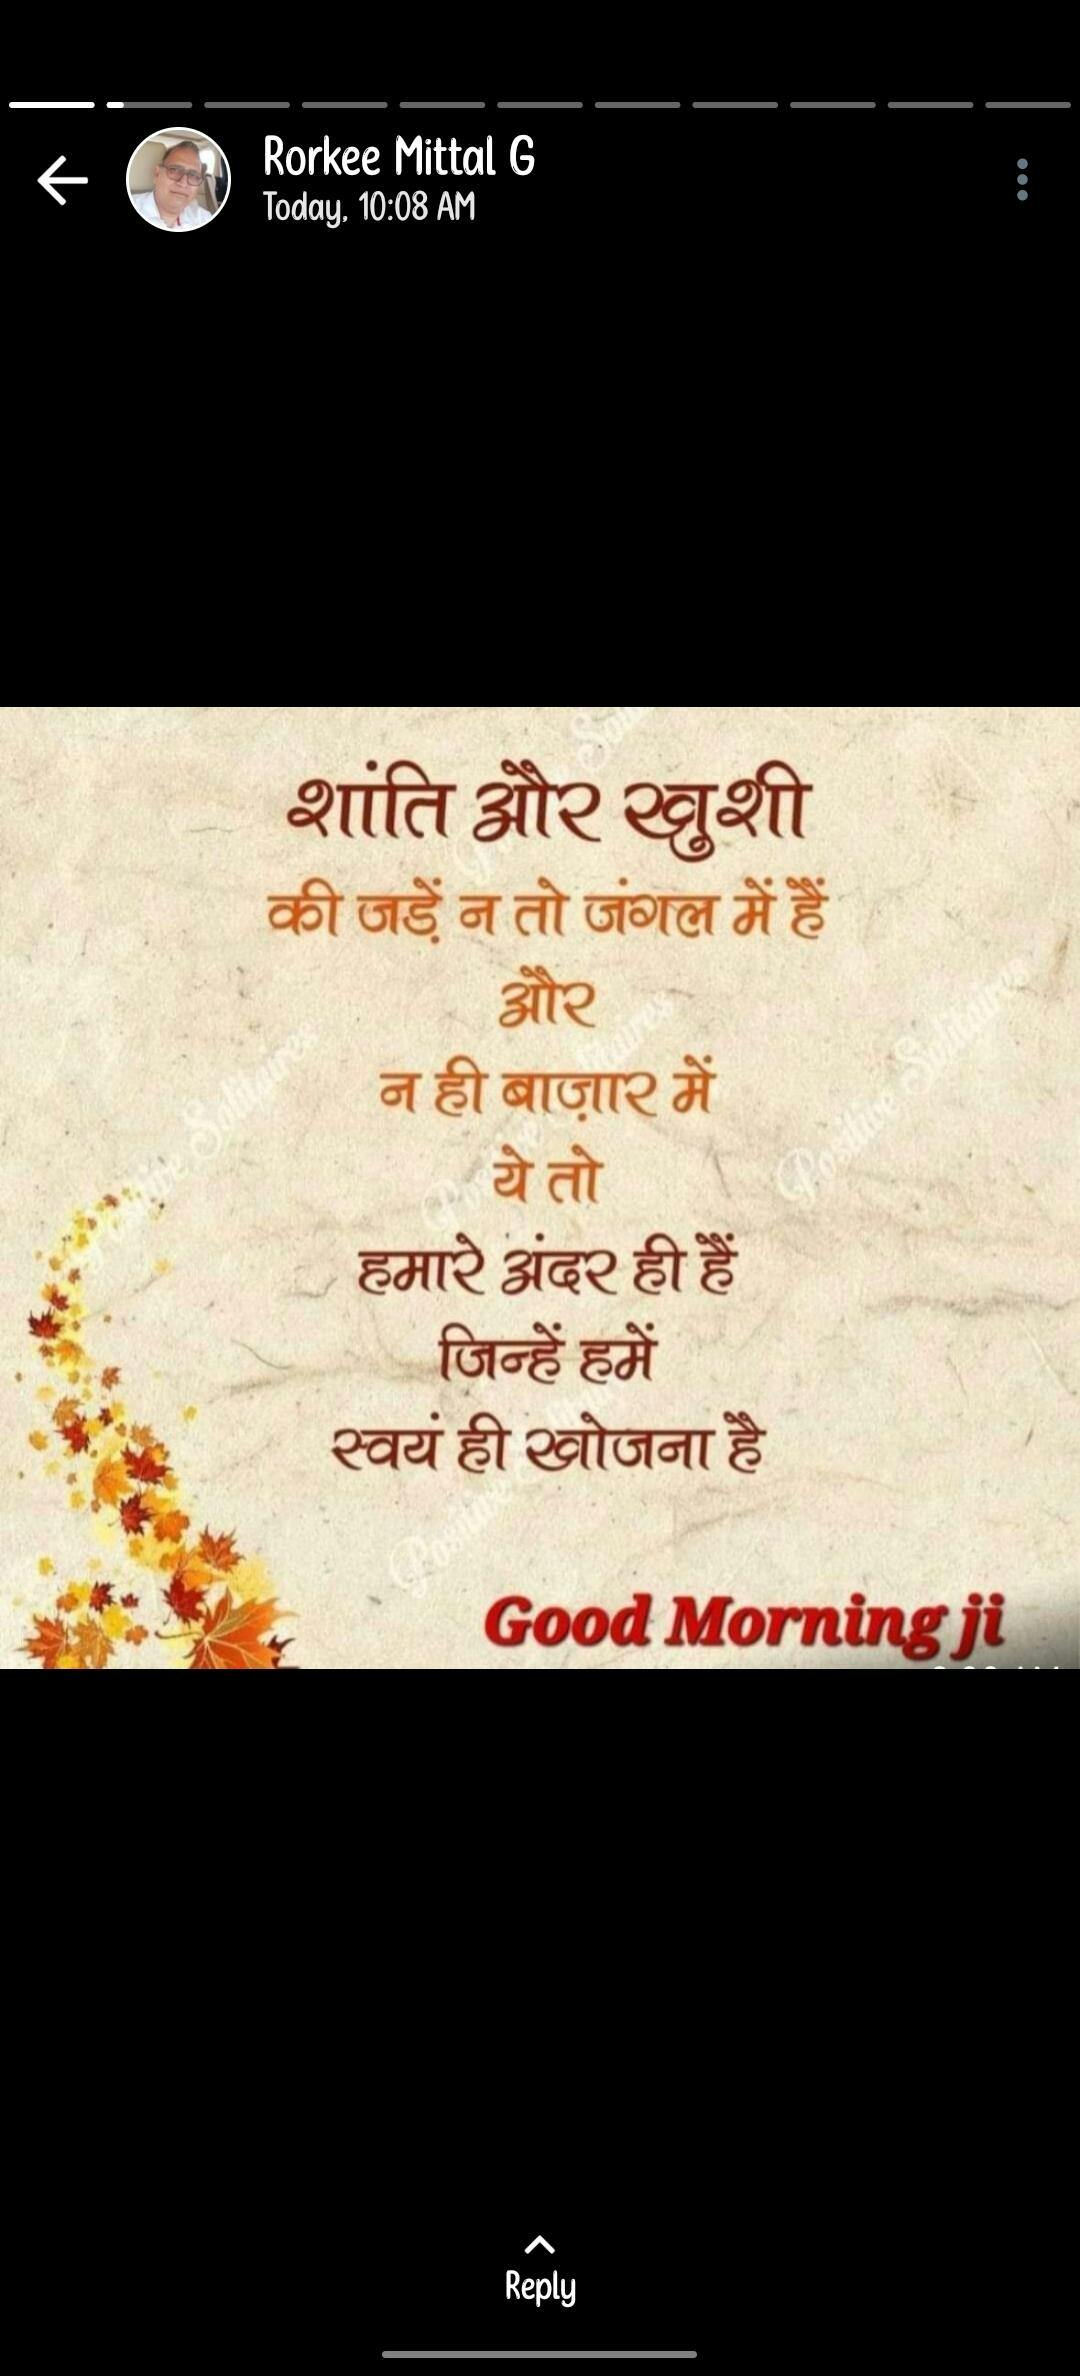 Rorkee Mittal G
Today, 10:08 AM
शांति और खुशी
की जड़ें न तो जंगल में हैं
और
न ही बाज़ार में
ये तो
हमारे अंदर ही हैं
जिन्हें हमें
स्वयं ही खोजना है
Positive Solitaires
Positive Solitaires
Good Morning ji
Reply